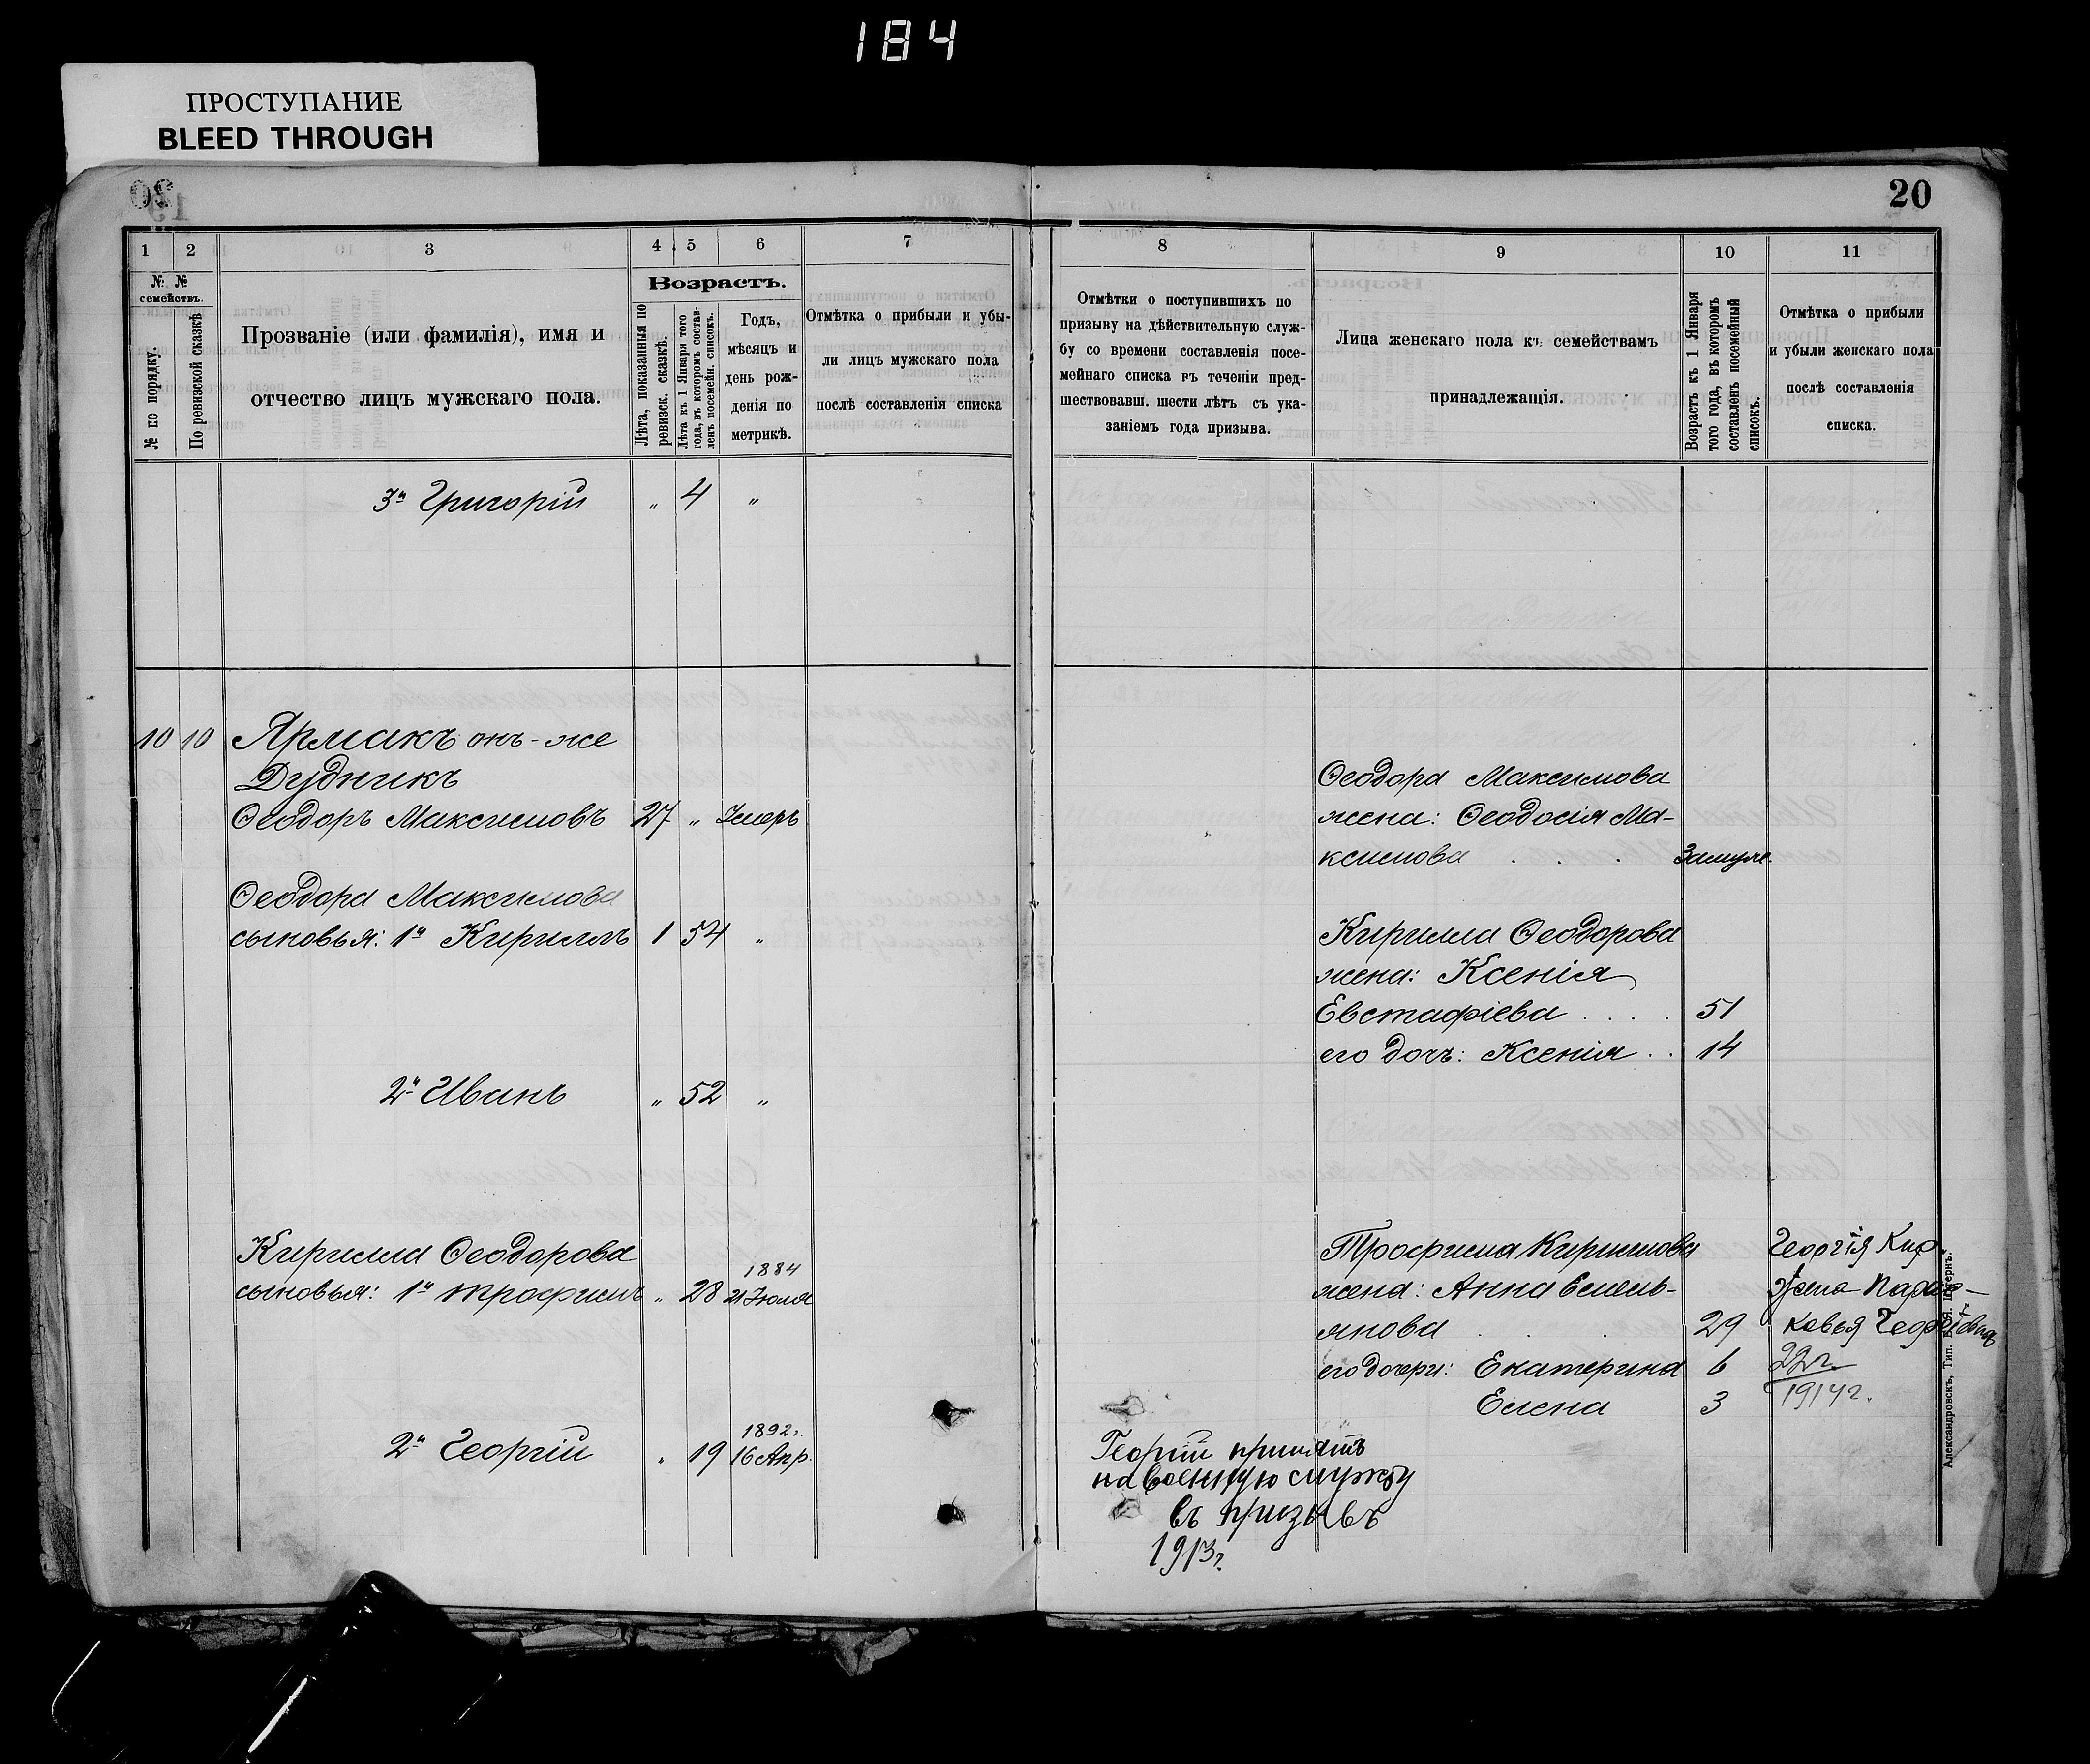 184
ПРОСТУПАНИЕ
BLEED THROUGH
20
1 2 3 4 5 6 7
№ № семействъ.
№ по порядку.
По ревизской сказкѣ
Прозваніе (или фамилія), имя и
отчество лицъ мужскаго пола.
Возрастъ.
Лѣта, показанныя по
ревизск. сказкѣ.
Лѣта къ 1 Января того
года, въ которомъ состав-
ленъ посемейн. списокъ.
Годъ,
мѣсяцъ и
день рож-
денія по
метрикѣ.
Отмѣтка о прибыли и убы-
ли лицъ мужскаго пола
послѣ составленія списка
3й Григорій „ 4 „
10 10 Ярмакъ онъ-же
Дудникъ
Ѳеодоръ Максимовъ 27 „ Умеръ
Ѳеодора Максимова
сыновья: 1й Кириллъ 1 54 „
2й Иванъ „ 52 „
Кирилла Ѳеодорова
сыновья: 1й Трофимъ „ 28 1884
21 Іюля
2й Георгій „ 19 1892 г.
16 Апр.
8 9 10 11
Отмѣтки о поступившихъ по
призыву на дѣйствительную служ-
бу со времени составленія посе-
мейнаго списка въ теченіи пред-
шествовавш. шести лѣтъ съ ука-
заніемъ года призыва.
Лица женскаго пола къ семействамъ
принадлежащія.
Возрастъ къ 1 Января
того года, въ которомъ
составленъ посемейный
списокъ.
Отмѣтка о прибыли
и убыли женскаго пола
послѣ составленія
списка.
Ѳеодора Максимова
жена: Ѳеодосія Ма-
ксимова . . . Замуж.
Кирилла Ѳеодорова
жена: Ксенія
Евстафіева . . . . 51
его дочь: Ксенія . . 14
Трофима Кириллова
жена: Анна Емель-
янова . . . 29
его дочери: Екатерина 6
Елена 3
Георгія Кир.
жена Парас-
ковья Георгіевна
22 г.
1914 г.
Георгій принятъ
на военную службу
въ призывъ
1913 г.
Александровскъ, Тип. Б. Я. Штернъ.